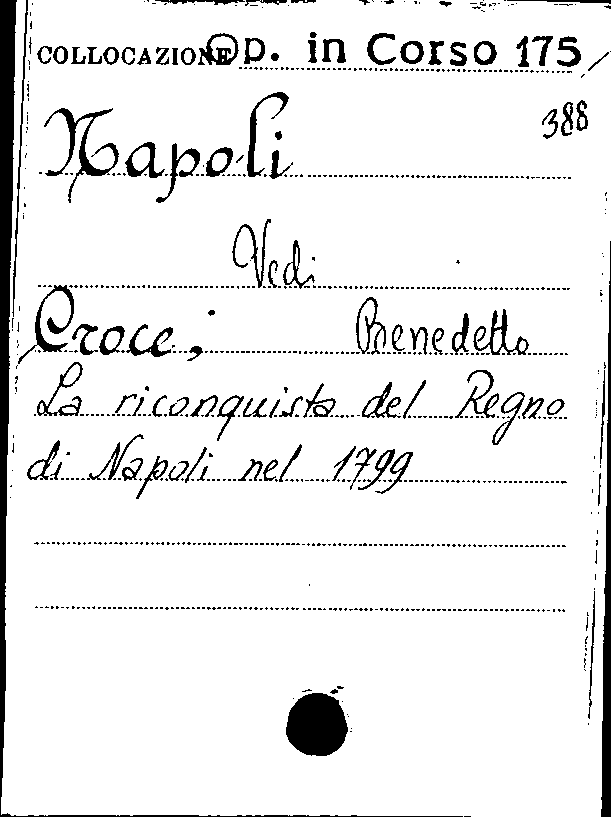 COLLOCAZIONE Op. in Corso 175
388
Napoli
Vedi
Croce; Benedetto
La riconquista del Regno
di Napoli nel 1799